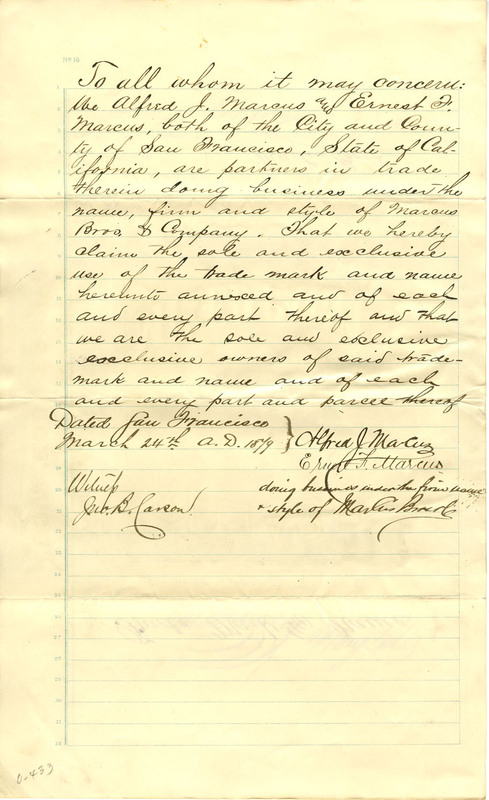 No 16
To all whom it may concern:
We Alfred J. Marcus and Ernest F.
Marcus, both of the City and Coun-
ty of San Francisco, State of Cal-
ifornia, are partners in trade
therein doing business under the
name, firm and style of Marcus
Bros & Company. That we hereby
claim the sole and exclusive
use of the trade mark and name
hereunto annexed and of each
and every part thereof and that
we are the sole and exclusive
exclusive owners of said trade-
mark and name and of each
and every part and parcel thereof
Dated San Francisco
March 24th A.D. 1879 } Alfred J. Marcus
Ernest F. Marcus
Witness doing business under the firm name
Jno. B. Carson & style of Marcus Bros & Co
0-433